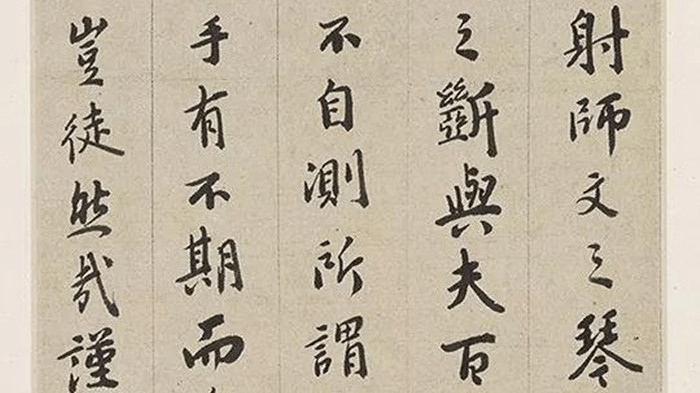 射師文之琴
之斲與夫百
不自測所謂
手有不期而
豈徒然哉謹